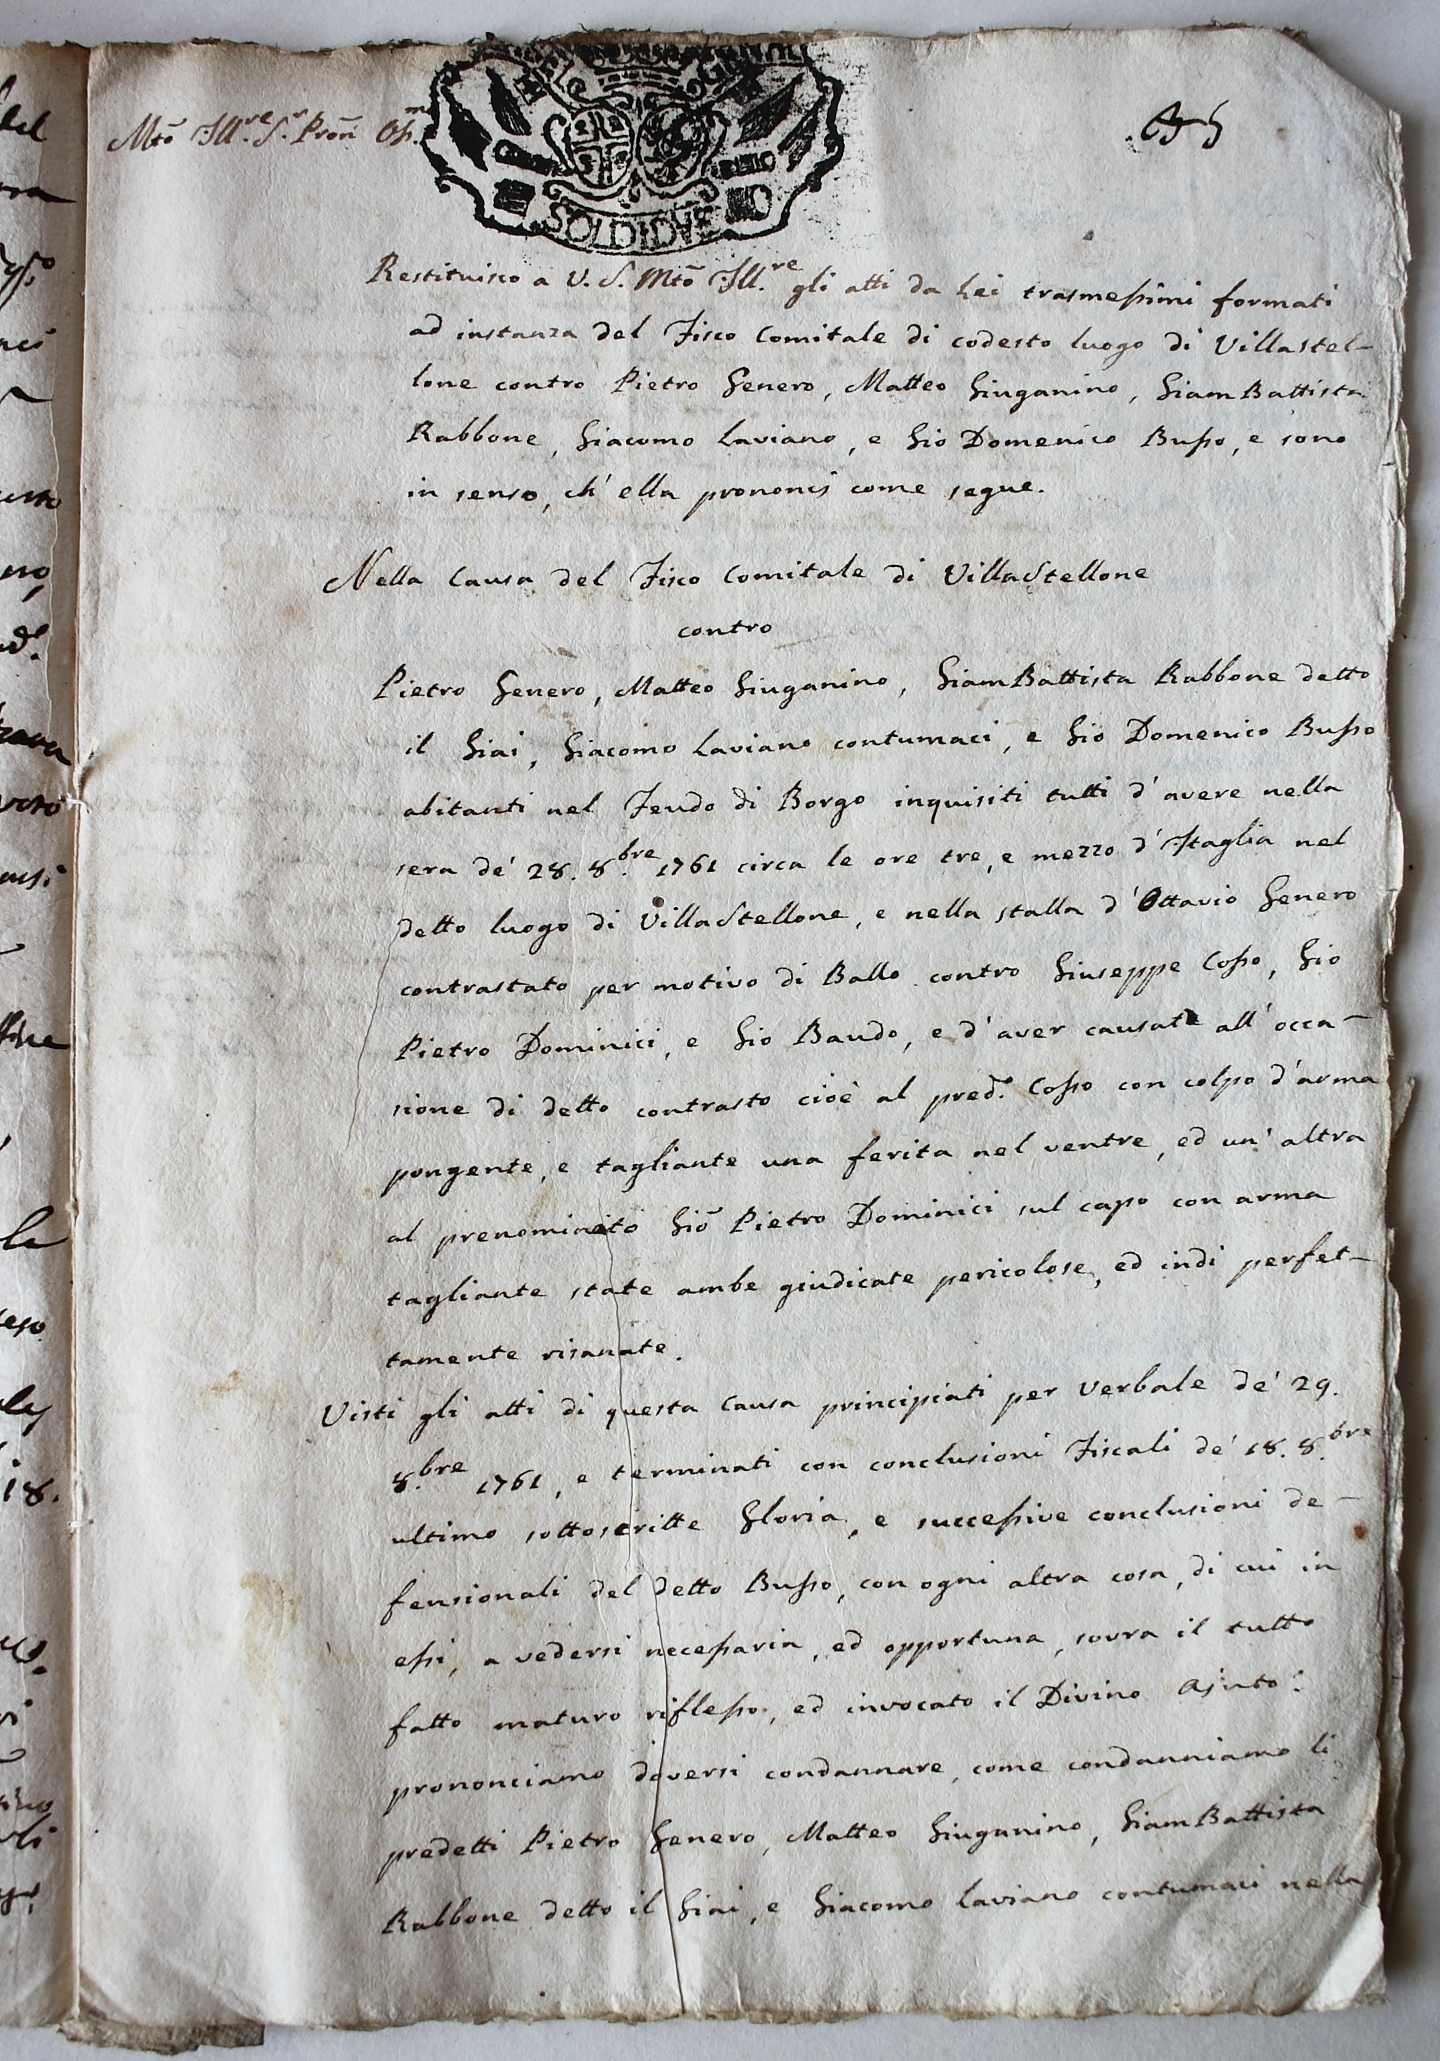 Mto Ill.re S.r Pron Os.m
SOLDI DVE
Restituisco a V. S. Mto Ill.re gli atti da Lei trasmessimi formati
ad instanza del Fisco Comitale di codesto luogo di Villastel-
lone contro Pietro Genero, Matteo Giuganino, GiamBattista
Rabbone, Giacomo Laviano, e Gio Domenico Busso, e sono
in senso, ch'ella prononcj come segue.
Nella Causa del Fisco Comitale di VillaStellone
contro
Pietro Genero, Matteo Giuganino, GiamBattista Rabbone detto
il Giai, Giacomo Laviano contumaci, e Gio Domenico Busso
abitanti nel Feudo di Borgo inquisiti tutti d'avere nella
sera de' 28. 8.bre 1761 circa le ore tre, e mezzo d'Italia nel
detto luogo di VillaStellone, e nella stalla d'Ottavio Genero
contrastato per motivo di Ballo contro Giuseppe Cosso, Gio
Pietro Dominici, e Gio Baudo, e d'aver causate all'occa-
sione di detto contrasto cioè al pred.o Cosso con colpo d'arma
pongente, e tagliante una ferita nel ventre, ed un'altra
al prenominato Gio Pietro Dominici sul capo con arma
tagliante state ambe giudicate pericolose, ed indi perfet-
tamente risanate.
Visti gli atti di questa Causa principiati per Verbale de' 29.
8.bre 1761, e terminati con conclusioni Fiscali de' 18. 8.bre
ultimo sottoscritte Gloria, e successive conclusioni de-
fensionali del detto Busso, con ogni altra cosa, di cui in
essi, a vedersi necessaria, ed opportuna, sovra il tutto
fatto maturo riflesso, ed invocato il Divino Ajuto:
prononciamo doversi condannare, come condanniamo li
predetti Pietro Genero, Matteo Giuganino, GiamBattista
Rabbone detto il Giai, e Giacomo Laviano contumaci nella